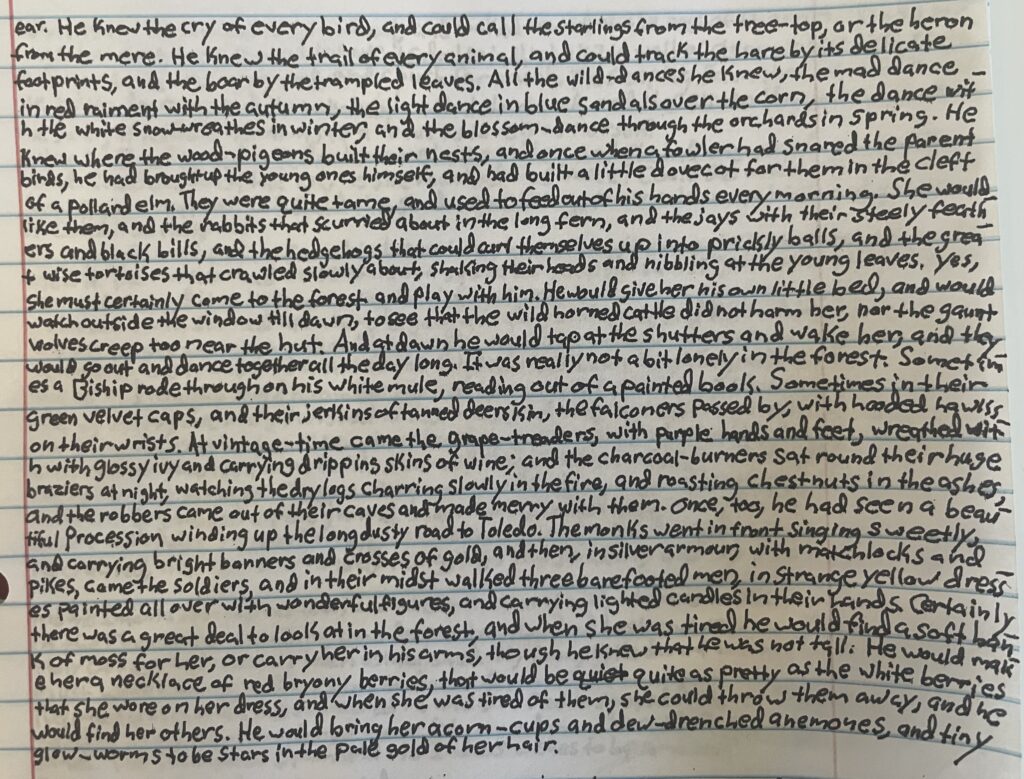 ear. He knew the cry of every bird, and could call the starlings from the tree-top, or the heron
from the mere. He knew the trail of every animal, and could track the hare by its delicate
footprints, and the boar by the trampled leaves. All the wild-dances he knew, the mad dance
in red raiment with the autumn, the light dance in blue sandals over the corn, the dance wit-
h the white snow-wreathes in winter, and the blossom-dance through the orchards in spring. He
knew where the wood-pigeons built their nests, and once when a fowler had snared the parent
birds, he had brought up the young ones himself, and had built a little dovecot for them in the cleft
of a pollard elm. They were quite tame, and used to feed out of his hands every morning. She would
like them, and the rabbits that scurried about in the long fern, and the jays with their steely feath-
ers and black bills, and the hedgehogs that could curl themselves up into prickly balls, and the grea-
t wise tortoises that crawled slowly about, shaking their heads and nibbling at the young leaves. Yes,
she must certainly come to the forest and play with him. He would give her his own little bed, and would
watch outside the window till dawn, to see that the wild horned cattle did not harm her, nor the gaunt
wolves creep too near the hut. And at dawn he would tap at the shutters and wake her, and they
would go out and dance together all the day long. It was really not a bit lonely in the forest. Sometim-
es a Biship rode through on his white mule, reading out of a painted book. Sometimes in their
green velvet caps, and their jerkins of tanned deerskin, the falconers passed by, with hooded hawks
on their wrists. At vintage-time came the grape-treaders, with purple hands and feet, wreathed wit-
h with glossy ivy and carrying dripping skins of wine; and the charcoal-burners sat round their huge
braziers at night, watching the dry logs charring slowly in the fire, and roasting chestnuts in the ashes,
and the robbers came out of their caves and made merry with them. Once, too, he had seen a beau-
tiful Procession winding up the long dusty road to Toledo. The monks went in front singing sweetly,
and carrying bright banners and crosses of gold, and then, in silver armour, with matchlocks and
pikes, came the soldiers, and in their midst walked three barefooted men, in strange yellow dress-
es painted all over with wonderful figures, and carrying lighted candles in their hands. Certainly
there was a great deal to look at in the forest, and when she was tired he would find a soft ban-
k of moss for her, or carry her in his arms, though he knew that he was not tall. He would mak-
e her a necklace of red bryony berries, that would be quiet quite as pretty as the white berries
that she wore on her dress, and when she was tired of them, she could throw them away, and he
would find her others. He would bring her acorn-cups and dew-drenched anemones, and tiny
glow-worms to be stars in the pale gold of her hair.